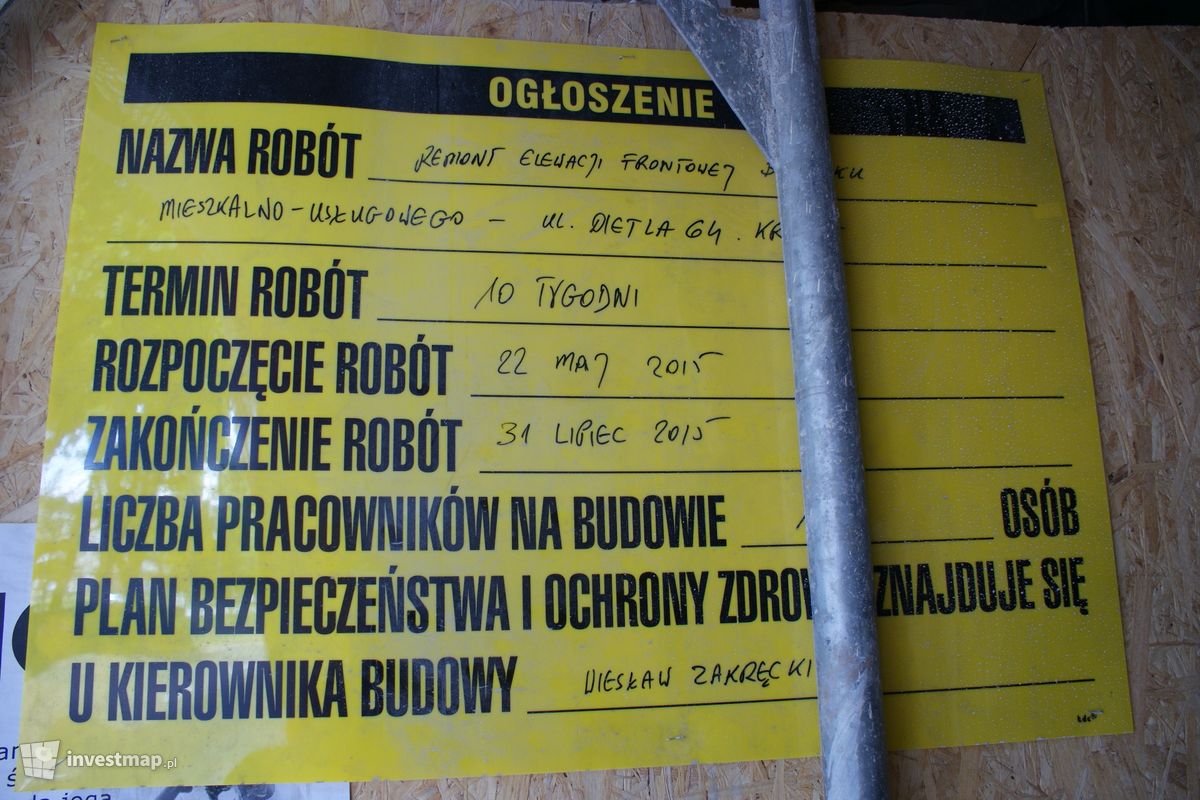 OGŁOSZENIE
NAZWA ROBÓT REMONT ELEWACJI FRONTOWEJ
MIESZKALNO-USŁUGOWEGO - UL. DIETLA 64.
TERMIN ROBÓT 10 TYGODNI
ROZPOCZĘCIE ROBÓT 22 MAJ 2015
ZAKOŃCZENIE ROBÓT 31 LIPIEC 2015
LICZBA PRACOWNIKÓW NA BUDOWIE OSÓB
PLAN BEZPIECZEŃSTWA I OCHRONY ZNAJDUJE SIĘ
U KIEROWNIKA BUDOWY WIESŁAW ZAKRĘCKI
tdc
investmap.pl